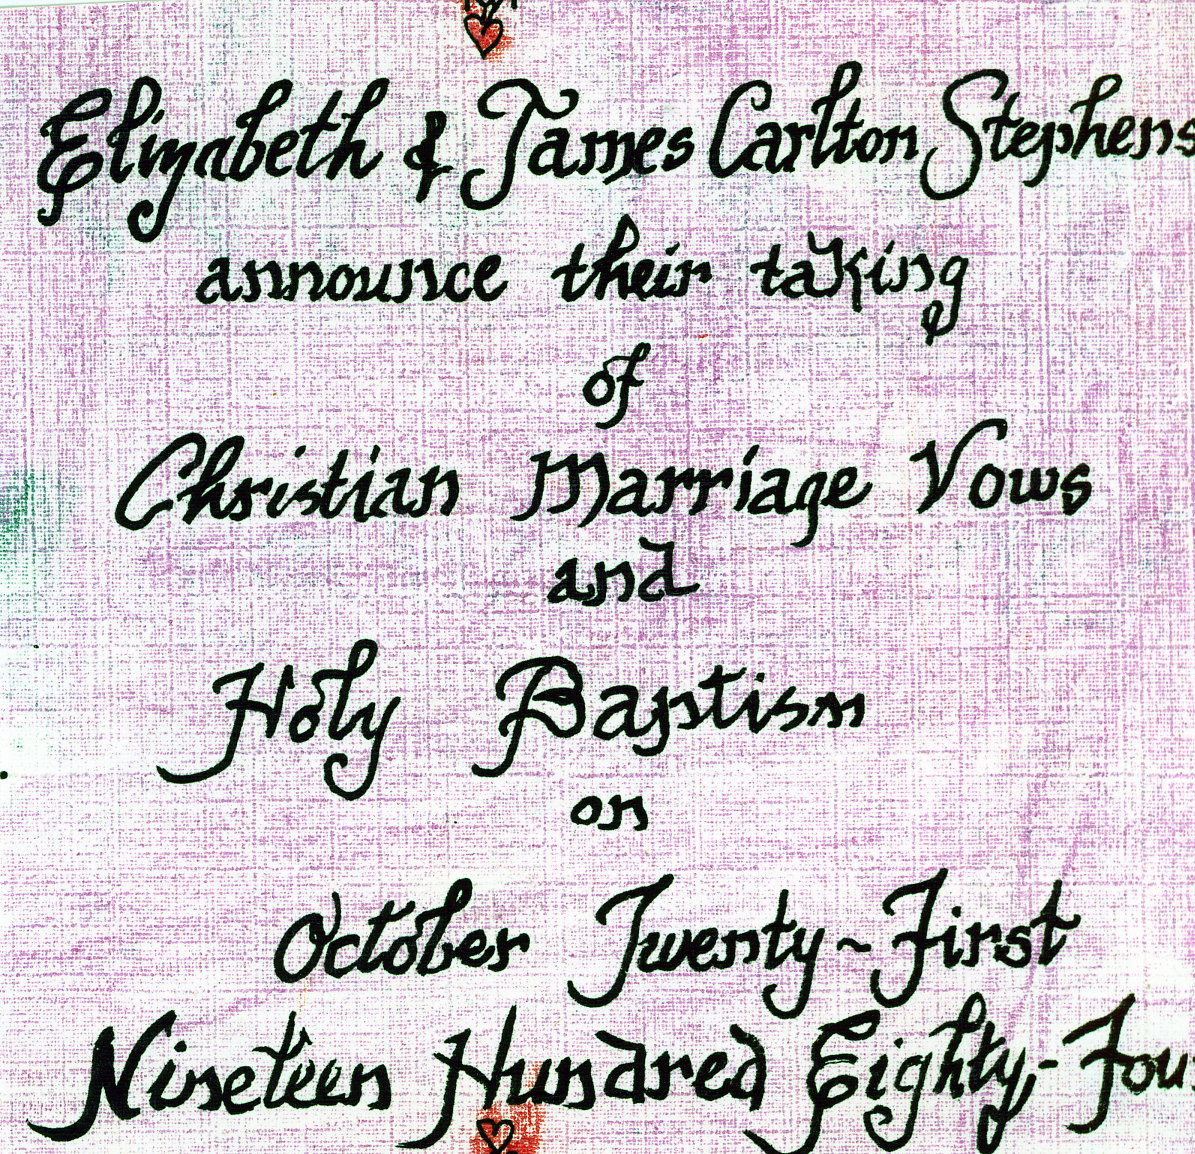 Elizabeth & James Carlton Stephens
announce their taking
of
Christian Marriage Vows
and
Holy Baptism
on
October Twenty~First
Nineteen Hundred Eighty-Fou